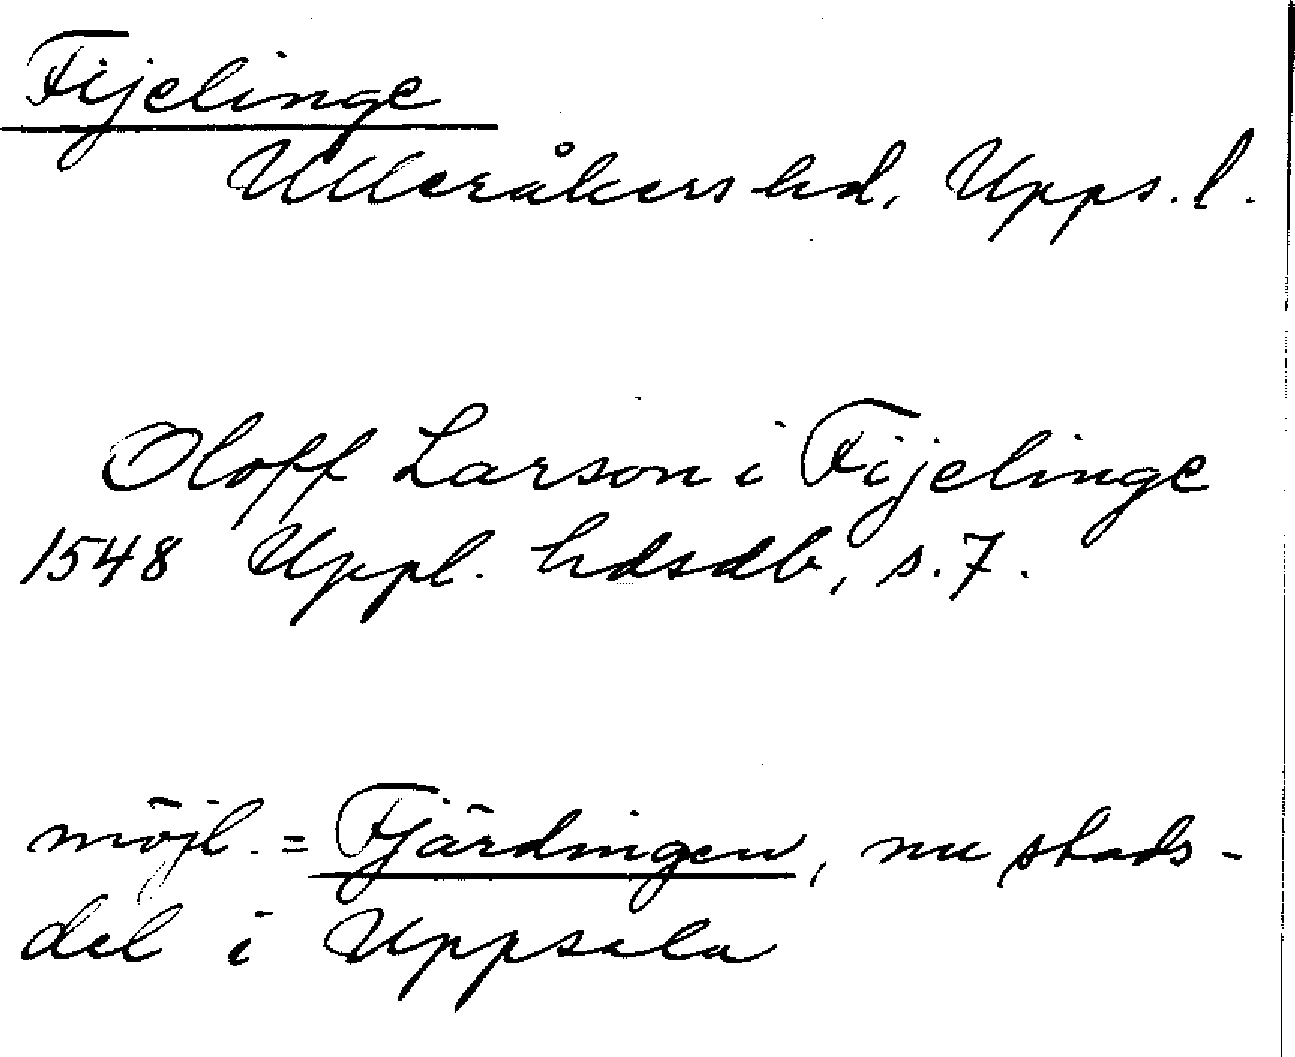 Fijelinge
Ulleråkers hd, Upps. l.
Oloff Larson i Fijelinge
1548 Uppl. hdsdb, s. 7.
möjl. = Fjärdingen, nu stads-
del i Uppsala